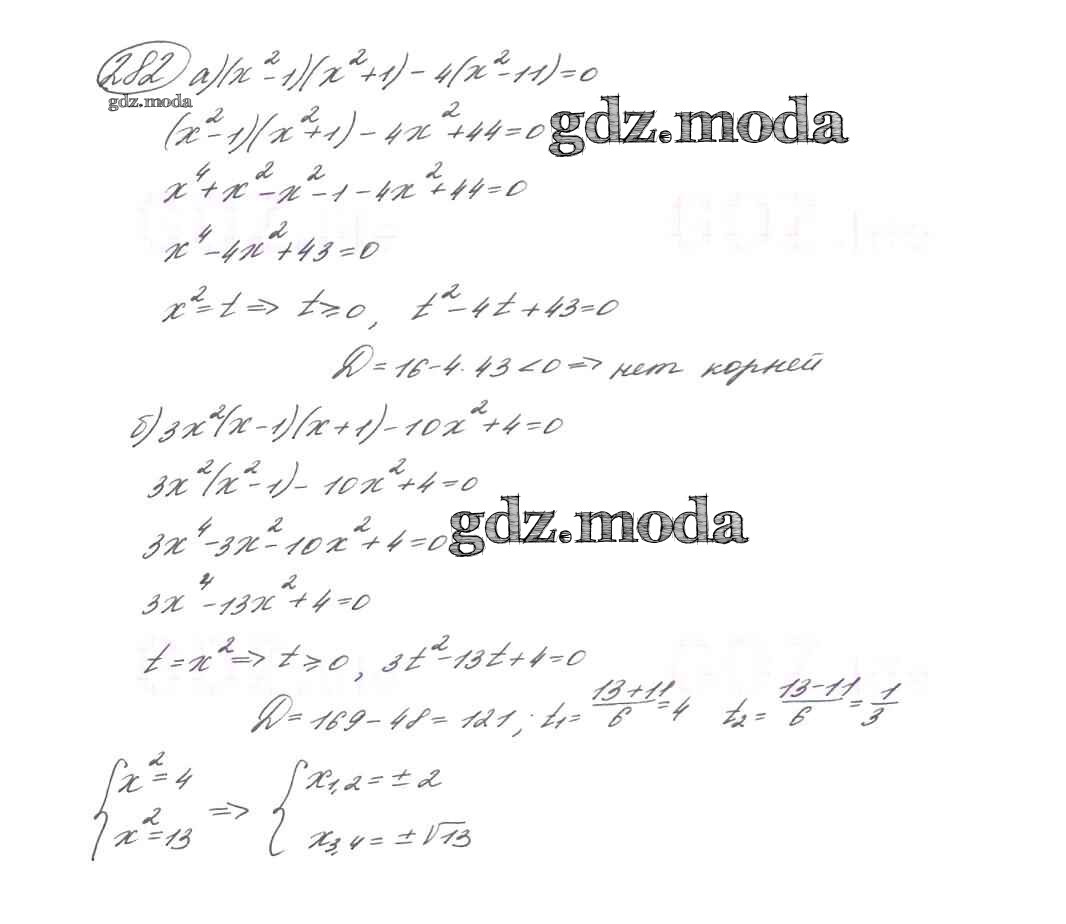 282 а) (x²-1)(x²+1)-4(x²-11)=0
gdz.moda
(x²-1)(x²+1)-4x²+44=0 gdz.moda
x⁴+x²-x²-1-4x²+44=0
x⁴-4x²+43=0
x²=t => t≥0, t²-4t+43=0
D=16-4·43<0 => нет корней
б) 3x²(x-1)(x+1)-10x²+4=0
3x²(x²-1)-10x²+4=0
3x⁴-3x²-10x²+4=0 gdz.moda
3x⁴-13x²+4=0
t=x² => t≥0, 3t²-13t+4=0
D=169-48=121; t₁=(13+11)/6=4 t₂=(13-11)/6=1/3
{x²=4 => {x₁,₂=±2
x²=13 x₃,₄=±√13